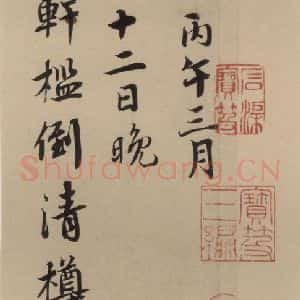 丙午三月
十二日晚
軒檻倒清樽
Shufawang.CN